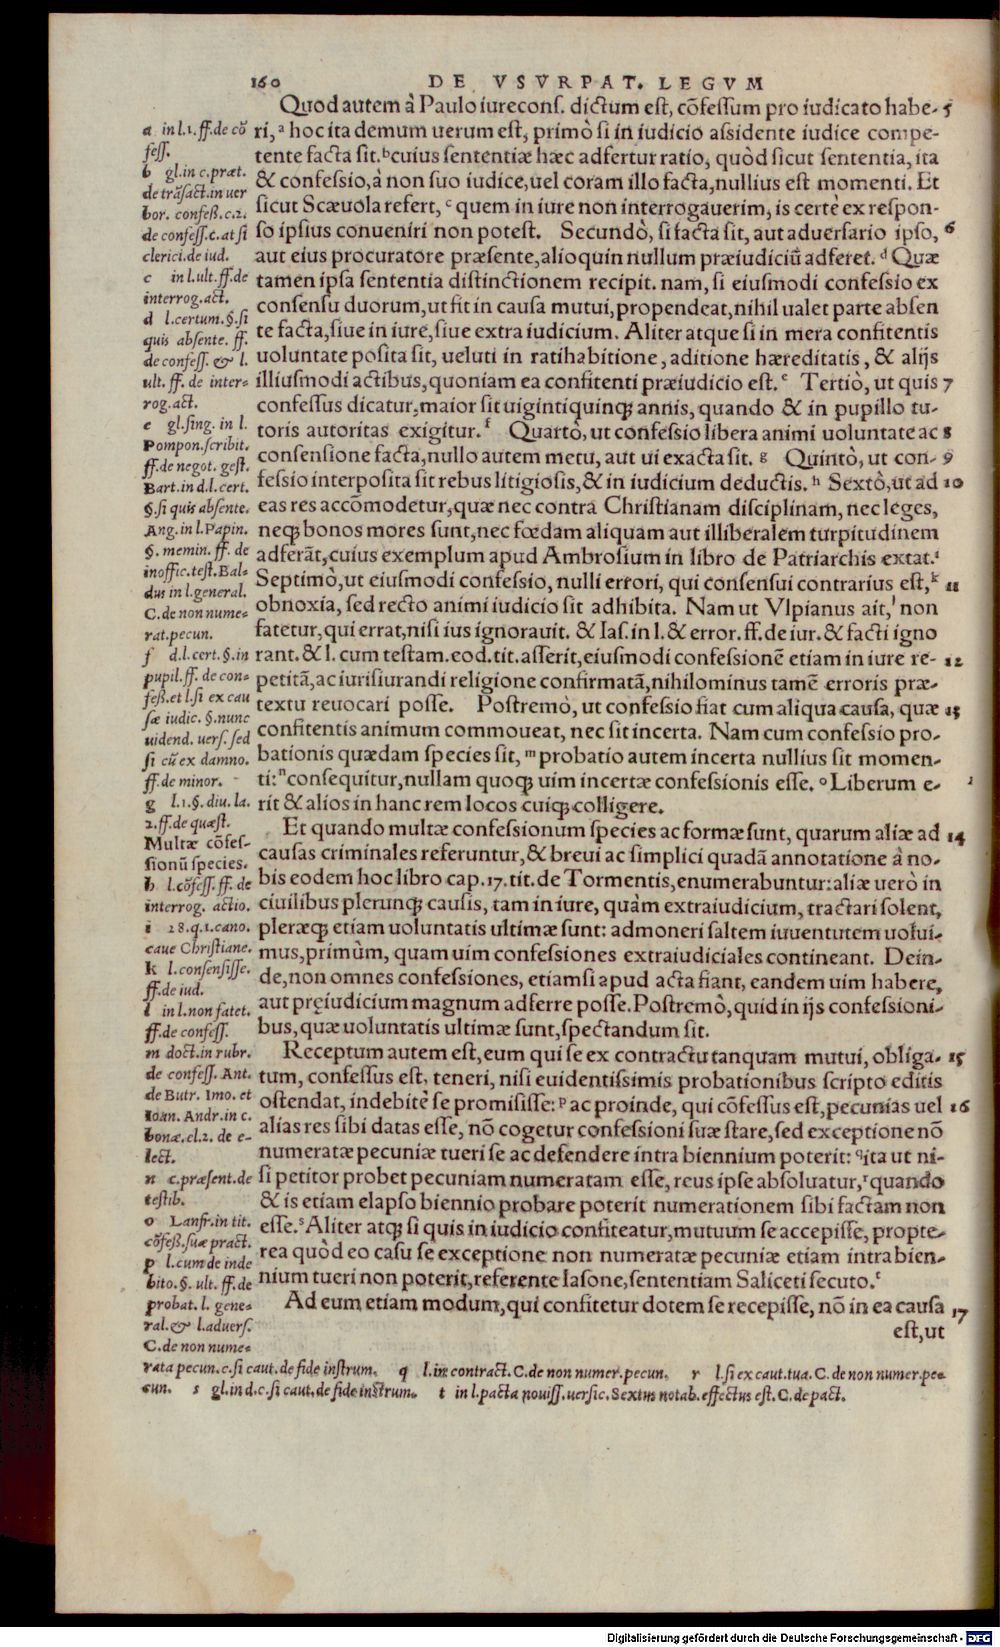 160 DE VSVRPAT. LEGVM
Quod autem à Paulo iurecons. dictum est, cõfessum pro iudicato habe- 5
ri,ª hoc ita demum uerum est, primò si in iudicio assidente iudice compe-
tente facta sit.ᵇ cuius sententiæ hæc adfertur ratio, quòd sicut sententia, ita
& confessio, à non suo iudice, uel coram illo facta, nullius est momenti. Et
sicut Scæuola refert, ᶜ quem in iure non interrogauerim, is certè ex respon-
so ipsius conueniri non potest. Secundò, si facta sit, aut aduersario ipso, 6
aut eius procuratore præsente, alioquin nullum præiudiciũ adferet. ᵈ Quæ
tamen ipsa sententia distinctionem recipit. nam, si eiusmodi confessio ex
consensu duorum, ut fit in causa mutui, propendeat, nihil ualet parte absen
te facta, siue in iure, siue extra iudicium. Aliter atque si in mera confitentis
uoluntate posita sit, ueluti in ratihabitione, aditione hæreditatis, & alijs
illiusmodi actibus, quoniam ea confitenti præiudicio est. ᵉ Tertiò, ut quis 7
confessus dicatur, maior sit uigintiquinq; annis, quando & in pupillo tu-
toris autoritas exigitur. ᶠ Quartò, ut confessio libera animi uoluntate ac 8
consensione facta, nullo autem metu, aut ui exacta sit. ᵍ Quintò, ut con- 9
fessio interposita sit rebus litigiosis, & in iudicium deductis. ʰ Sextò, ut ad 10
eas res accõmodetur, quæ nec contra Christianam disciplinam, nec leges,
neq; bonos mores sunt, nec fœdam aliquam aut illiberalem turpitudinem
adferãt, cuius exemplum apud Ambrosium in libro de Patriarchis extat. ⁱ
Septimò, ut eiusmodi confessio, nulli errori, qui consensui contrarius est, ᵏ 11
obnoxia, sed recto animi iudicio sit adhibita. Nam ut Vlpianus ait, ˡ non
fatetur, qui errat, nisi ius ignorauit. & Ias. in l. & error. ff. de iur. & facti igno
rant. & l. cum testam. eod. tit. asserit, eiusmodi confessionẽ etiam in iure re- 12
petitã, ac iurisiurandi religione confirmatã, nihilominus tamẽ erroris præ-
textu reuocari posse. Postremò, ut confessio fiat cum aliqua causa, quæ 13
confitentis animum commoueat, nec sit incerta. Nam cum confessio pro-
bationis quædam species sit, ᵐ probatio autem incerta nullius sit momen-
ti: ⁿ consequitur, nullam quoq; uim incertæ confessionis esse. ᵒ Liberum e-
rit & alios in hanc rem locos cuiq; colligere.
Et quando multæ confessionum species ac formæ sunt, quarum aliæ ad 14
causas criminales referuntur, & breui ac simplici quadã annotatione à no-
bis eodem hoc libro cap. 17. tit. de Tormentis, enumerabuntur: aliæ uerò in
ciuilibus plerunq; causis, tam in iure, quàm extra iudicium, tractari solent,
pleræq; etiam uoluntatis ultimæ sunt: admoneri saltem iuuentutem uolui-
mus, primùm, quam uim confessiones extraiudiciales contineant. Dein-
de, non omnes confessiones, etiamsi apud acta fiant, eandem uim habere,
aut pręiudicium magnum adferre posse. Postremò, quid in ijs confessioni-
bus, quæ uoluntatis ultimæ sunt, spectandum sit.
Receptum autem est, eum qui se ex contractu tanquam mutui, obliga- 15
tum, confessus est, teneri, nisi euidentissimis probationibus scripto editis
ostendat, indebitè se promisisse: ᵖ ac proinde, qui cõfessus est, pecunias uel 16
alias res sibi datas esse, nõ cogetur confessioni suæ stare, sed exceptione nõ
numeratæ pecuniæ tueri se ac defendere intra biennium poterit: ᑫ ita ut ni-
si petitor probet pecuniam numeratam esse, reus ipse absoluatur, ʳ quando
& is etiam elapso biennio probare poterit numerationem sibi factam non
esse. ˢ Aliter atq; si quis in iudicio confiteatur, mutuum se accepisse, propte-
rea quòd eo casu se exceptione non numeratæ pecuniæ etiam intra bien-
nium tueri non poterit, referente Iasone, sententiam Saliceti secuto. ᵗ
Ad eum etiam modum, qui confitetur dotem se recepisse, nõ in ea causa 17
est, ut
a in l. 1. ff. de cõ
fess.
b gl. in c. præt.
de trãsact. in uer
bor. confeß. c. 2.
de confess. c. at si
clerici. de iud.
c in l. ult. ff. de
interrog. act.
d l. certum. §. si
quis absente. ff.
de confess. & l.
ult. ff. de inter-
rog. act.
e gl. sing. in l.
Pompon. scribit.
ff. de negot. gest.
Bart. in d. l. cert.
§. si quis absente.
Ang. in l. Papin.
§. memin. ff. de
inoffic. test. Bal-
dus in l. general.
C. de non nume-
rat. pecun.
f d. l. cert. §. in
pupil. ff. de con-
feß. et l. si ex cau
sæ iudic. §. nunc
uidend. uers. sed
si cũ ex damno.
ff. de minor.
g l. 1. §. diu. la.
2. ff. de quæst.
Multæ cõfes-
sionũ species.
h l. cõfess. ff. de
interrog. actio.
i 28. q. 1. cano.
caue Christiane.
k l. consensisse.
ff. de iud.
l in l. non fatet.
ff. de confess.
m doct. in rubr.
de confess. Ant.
de Butr. Imo. et
Ioan. Andr. in c.
bonæ. el. 2. de e-
lect.
n c. præsent. de
testib.
o Lanfr. in tit.
cõfeß. suæ pract.
p l. cum de inde
bito. §. ult. ff. de
probat. l. gene-
ral. & l. aduers.
C. de non nume-
rata pecun. c. si caut. de fide instrum. q l. in contract. C. de non numer. pecun. r l. si ex caut. tua. C. de non numer. pe-
cun. s gl. in d. c. si caut. de fide instrum. t in l. pacta nouiss. uersic. Sextus notab. effectus est. C. de pact.
Digitalisierung gefördert durch die Deutsche Forschungsgemeinschaft - DFG